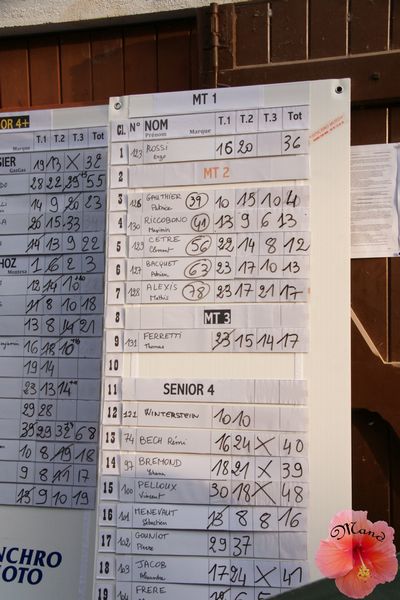 MT 1
Cl. N° NOM Prénom Marque T.1 T.2 T.3 Tot
1 123 ROSSI Enzo 16 20 36
2 MT 2
3 126 GAUTHIER Patrice 39 10 15 10 4
4 130 RICCOBONO Maximin 41 13 9 6 13
5 123 CETRE Clément 56 22 14 8 12
6 127 BACQUET Adrien 63 23 17 10 13
7 128 ALEXIS Mathis 78 23 17 21 17
8 MT 3
9 131 FERRETTI Thomas 23 15 14 17
10
11 SENIOR 4
12 121 WINTERSTEIN 10 10
13 74 BECH Rémi 16 24 X 40
14 97 BREMOND Yohann 18 21 X 39
15 100 PELLOUX Vincent 30 18 X 48
16 101 MENEVAUT Sébastien 13 8 8 16
17 102 GOUNIOT Pierre 29 37
18 103 JACOB Alexandre 17 24 X 41
19 104 FRERE
OR 4+
Marque T.1 T.2 T.3 Tot
SIER GasGas 19 13 X 38
28 22 55
14 9 20 23
20 15 33
14 13 9 22
HOZ Montesa 1 6 2 3
12 14 10
21 8 10 18
13 8 14 21
16 18 10
19 14
23 13 14
29 28
39 29 32 68
10 8 19 18
9 8 11 17
23 9 10 19
NCHRO
OTO
Mand